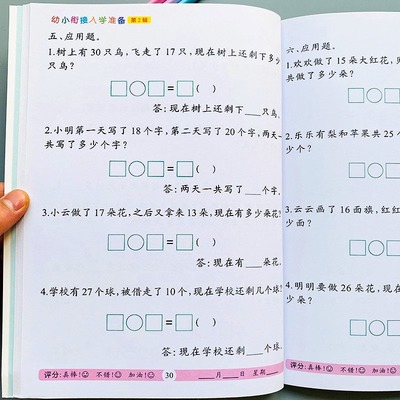 幼小衔接入学准备 第2辑
五、应用题。
1.树上有30只鸟,飞走了17只,现在树上还剩下多少
只鸟?
□○□=□( )
答:现在树上还剩下___只鸟。
2.小明第一天写了18个字,第二天写了20个字,两天一
共写了多少个字?
□○□=□( )
答:两天一共写了___个字。
3.小云做了17朵花,之后又拿来13朵,现在有多少朵花?
□○□=□( )
答:现在有___朵花。
4.学校有27个球,被借走了10个,现在学校还剩几个球?
□○□=□( )
答:现在学校还剩___个球。
评分:真棒! 不错! 加油! 30 ___月___日 星期___
六、应用题。
1.欢欢做了15朵大红花,
共做了多少朵?
□○□
2.乐乐有梨和苹果共25个
少个?
□○□
3.云云画了16面旗,红红
少面?
□○□
4.明明要做26朵花,现在
少朵?
□○□
评分:真棒! 不错! 加油!